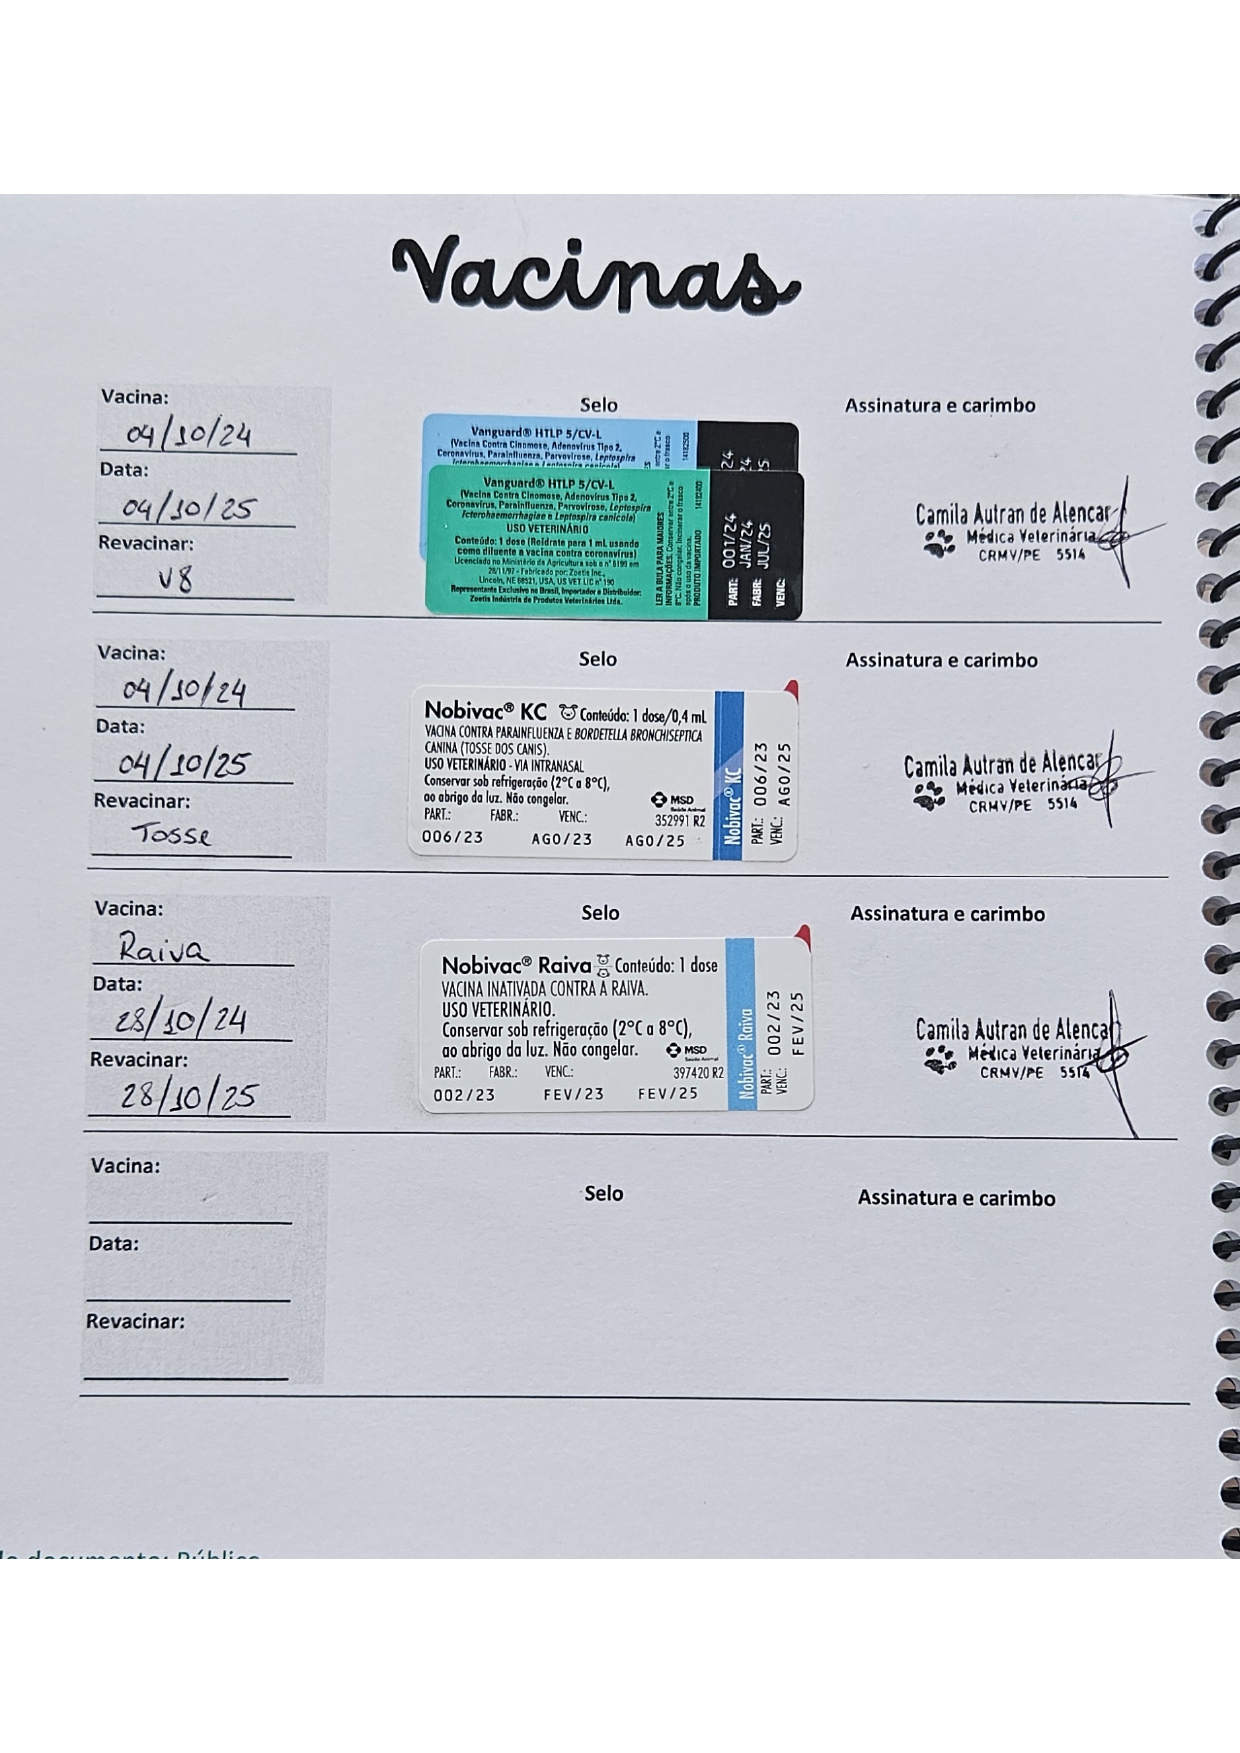 Vacinas
Vacina:
04/10/24
Data:
04/10/25
Revacinar:
V8
Selo
Vanguard® HTLP 5/CV-L
(Vacina Contra Cinomose, Adenovírus Tipo 2,
Coronavírus, Parainfluenza, Parvovirose, Leptospira
Icterohaemorrhagiae e Leptospira canicola)
14182500
Vanguard® HTLP 5/CV-L
(Vacina Contra Cinomose, Adenovírus Tipo 2,
Coronavírus, Parainfluenza, Parvovirose, Leptospira
Icterohaemorrhagiae e Leptospira canicola)
USO VETERINÁRIO
Conteúdo: 1 dose (Reidrate para 1 mL usando
como diluente a vacina contra coronavírus)
Licenciado no Ministério da Agricultura sob o nº 8199 em
28/11/97 - Fabricado por: Zoetis Inc.,
Lincoln, NE 68521, USA, US VET LIC nº 190
Representante Exclusivo no Brasil, Importador e Distribuidor:
Zoetis Indústria de Produtos Veterinários Ltda.
LER A BULA PARA MAIORES
INFORMAÇÕES. Conservar entre 2°C e
8°C. Não congelar. Incinerar o frasco
após o uso da vacina.
PRODUTO IMPORTADO 14182400
PART: 001/24
FABR: JAN/24
VENC: JUL/25
Assinatura e carimbo
Camila Autran de Alencar
Médica Veterinária
CRMV/PE 5514
Vacina:
04/10/24
Data:
04/10/25
Revacinar:
Tosse
Selo
Nobivac® KC Conteúdo: 1 dose/0,4 mL
VACINA CONTRA PARAINFLUENZA E BORDETELLA BRONCHISEPTICA
CANINA (TOSSE DOS CANIS).
USO VETERINÁRIO - VIA INTRANASAL
Conservar sob refrigeração (2°C a 8°C),
ao abrigo da luz. Não congelar.
MSD
Saúde Animal
352991 R2
PART.: FABR.: VENC.:
006/23 AGO/23 AGO/25
Nobivac® KC
PART.: 006/23
VENC.: AGO/25
Assinatura e carimbo
Camila Autran de Alencar
Médica Veterinária
CRMV/PE 5514
Vacina:
Raiva
Data:
28/10/24
Revacinar:
28/10/25
Selo
Nobivac® Raiva Conteúdo: 1 dose
VACINA INATIVADA CONTRA A RAIVA.
USO VETERINÁRIO.
Conservar sob refrigeração (2°C a 8°C),
ao abrigo da luz. Não congelar.
MSD
Saúde Animal
397420 R2
PART.: FABR.: VENC.:
002/23 FEV/23 FEV/25
Nobivac® Raiva
PART.: 002/23
VENC.: FEV/25
Assinatura e carimbo
Camila Autran de Alencar
Médica Veterinária
CRMV/PE 5514
Vacina:
Data:
Revacinar:
Selo
Assinatura e carimbo
documento: Público